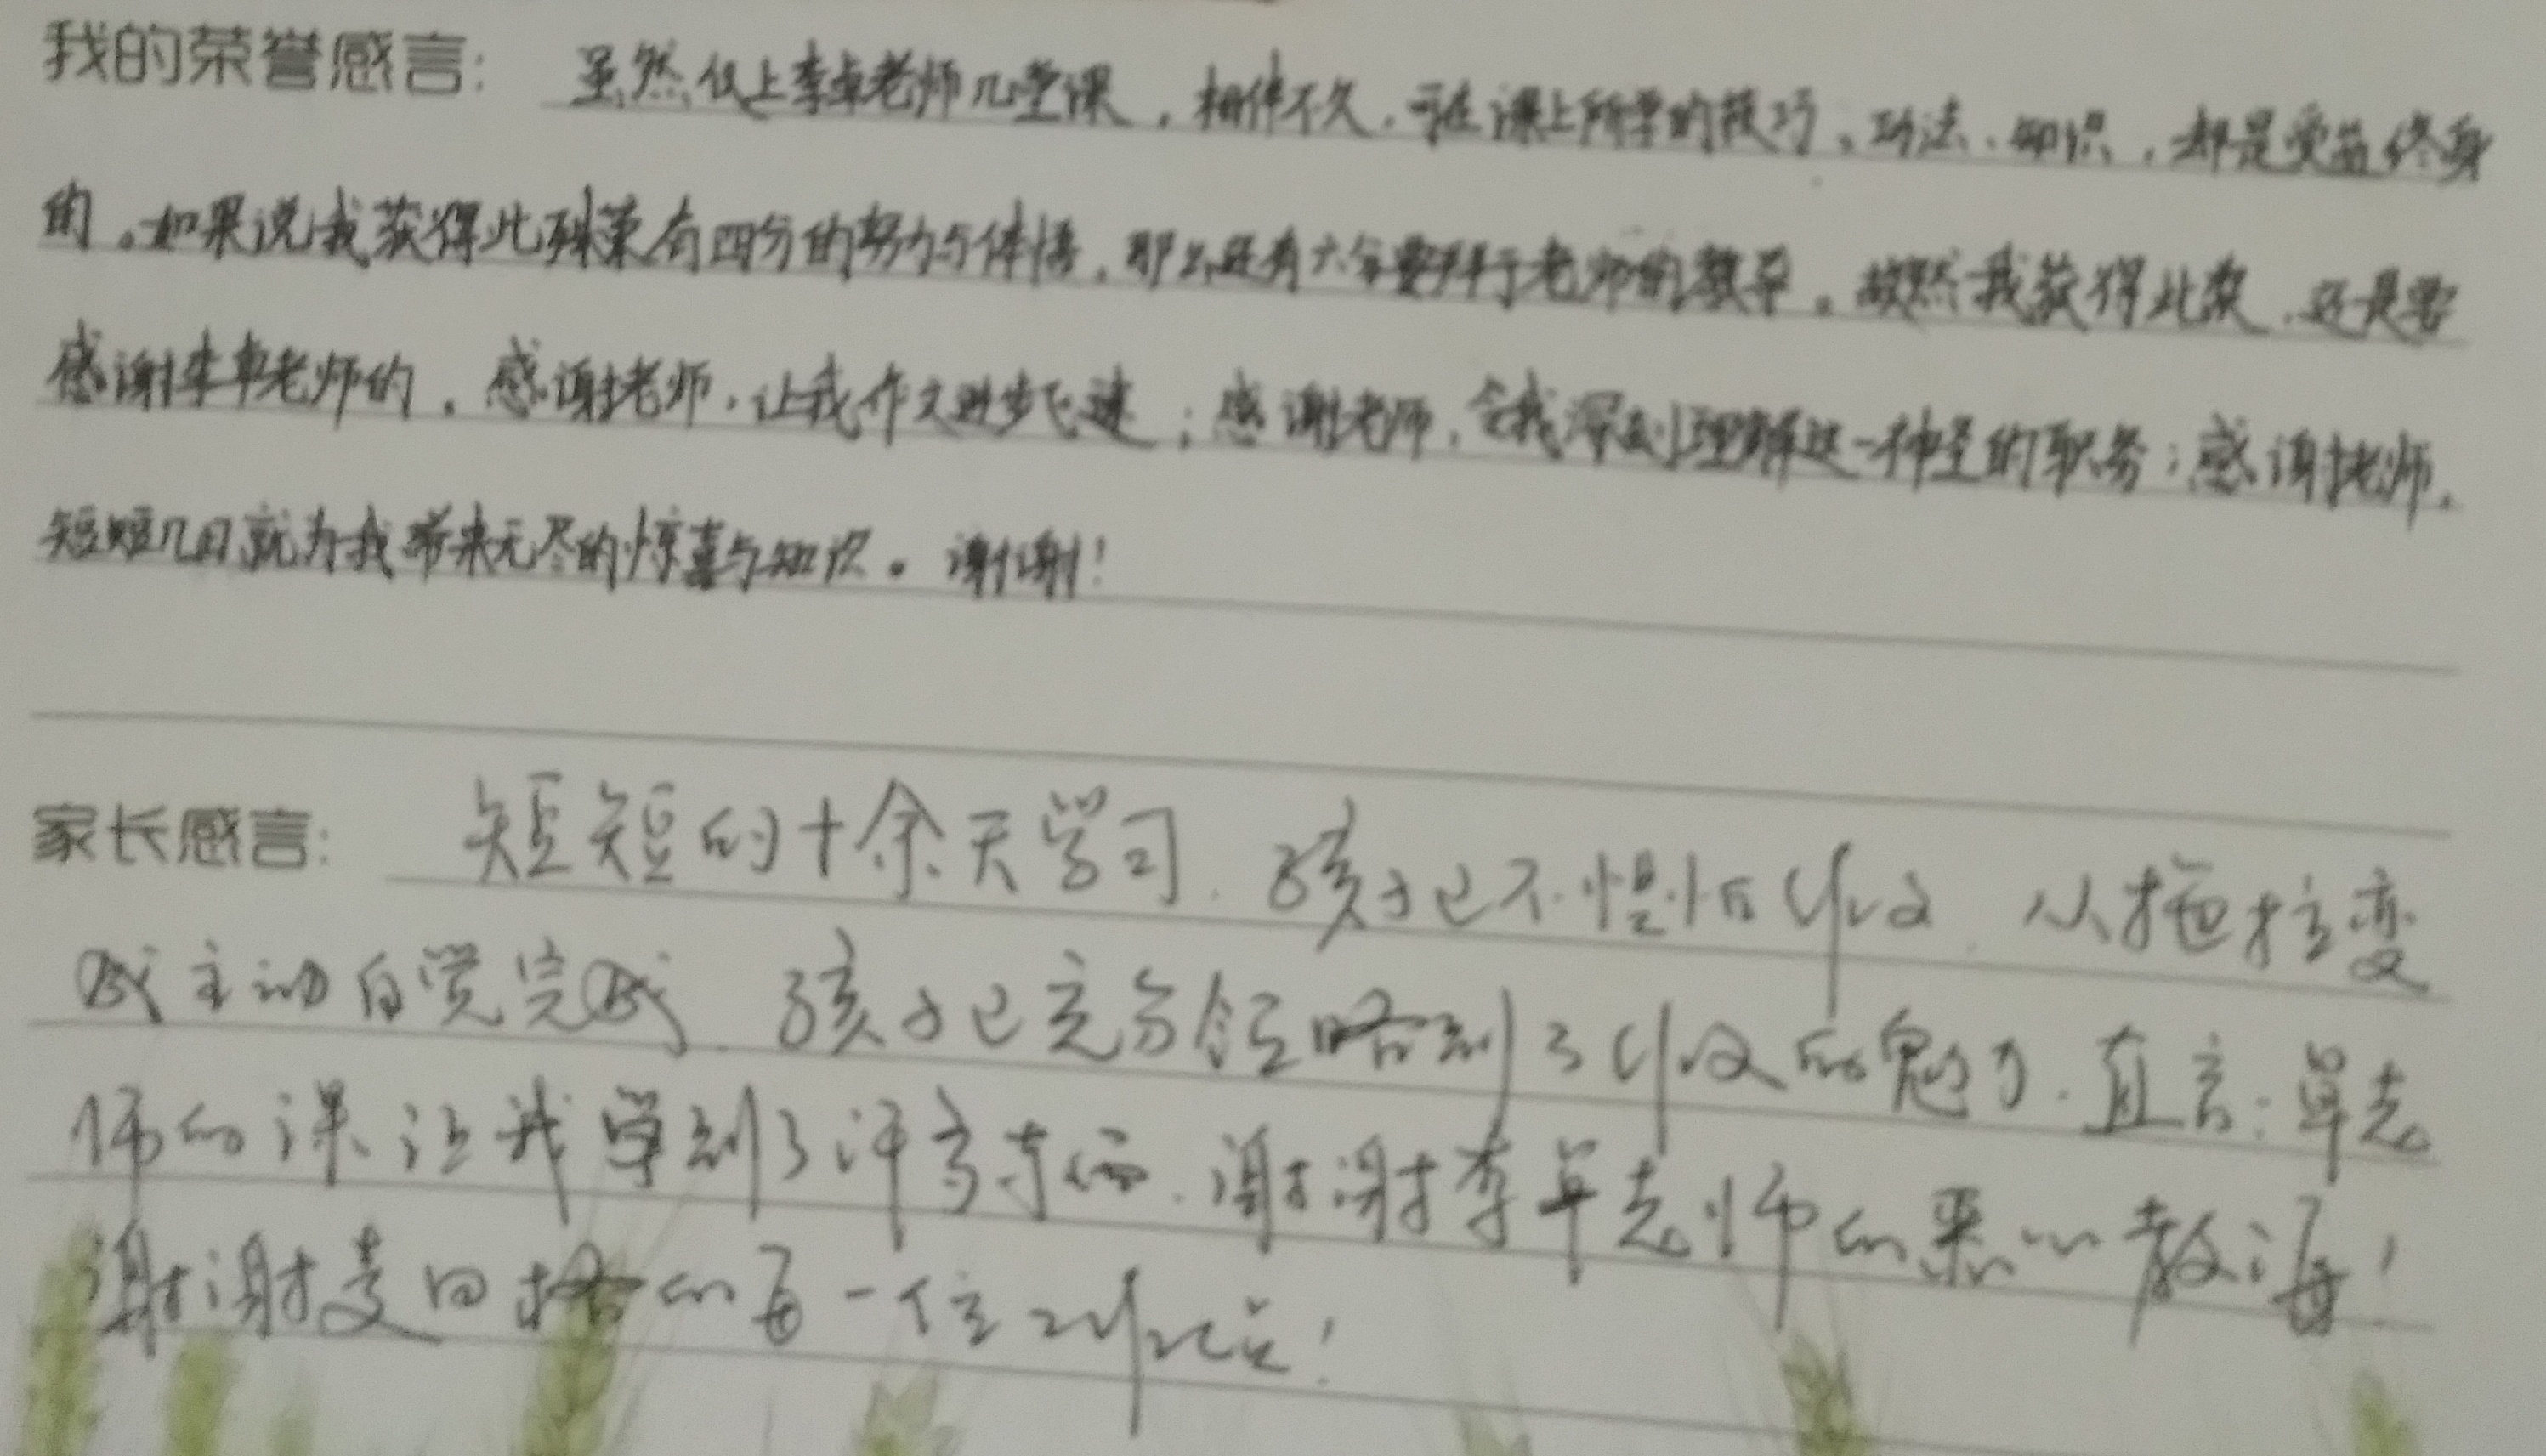 我的荣誉感言: 虽然仅上李卓老师几堂课，相伴不久，可在课上所学的技巧、功法、知识，都是受益终身
的。如果说我获得此殊荣有四分的努力与体悟，那么还有六分要拜于老师的教导。故然我获得此奖，还是要
感谢李卓老师的。感谢老师，让我作文进步飞速；感谢老师，令我深刻理解这一神圣的职务；感谢老师，
短短几日就为我带来无尽的惊喜与知识。谢谢！
家长感言: 短短的十余天学习，孩子已不惧怕作文，从拖拉变
成主动自觉完成，孩子已充分领略到了作文的魅力，直言：卓老
师的课让我学到了许多东西，谢谢李卓老师的悉心教海！
谢谢麦田格的每一位